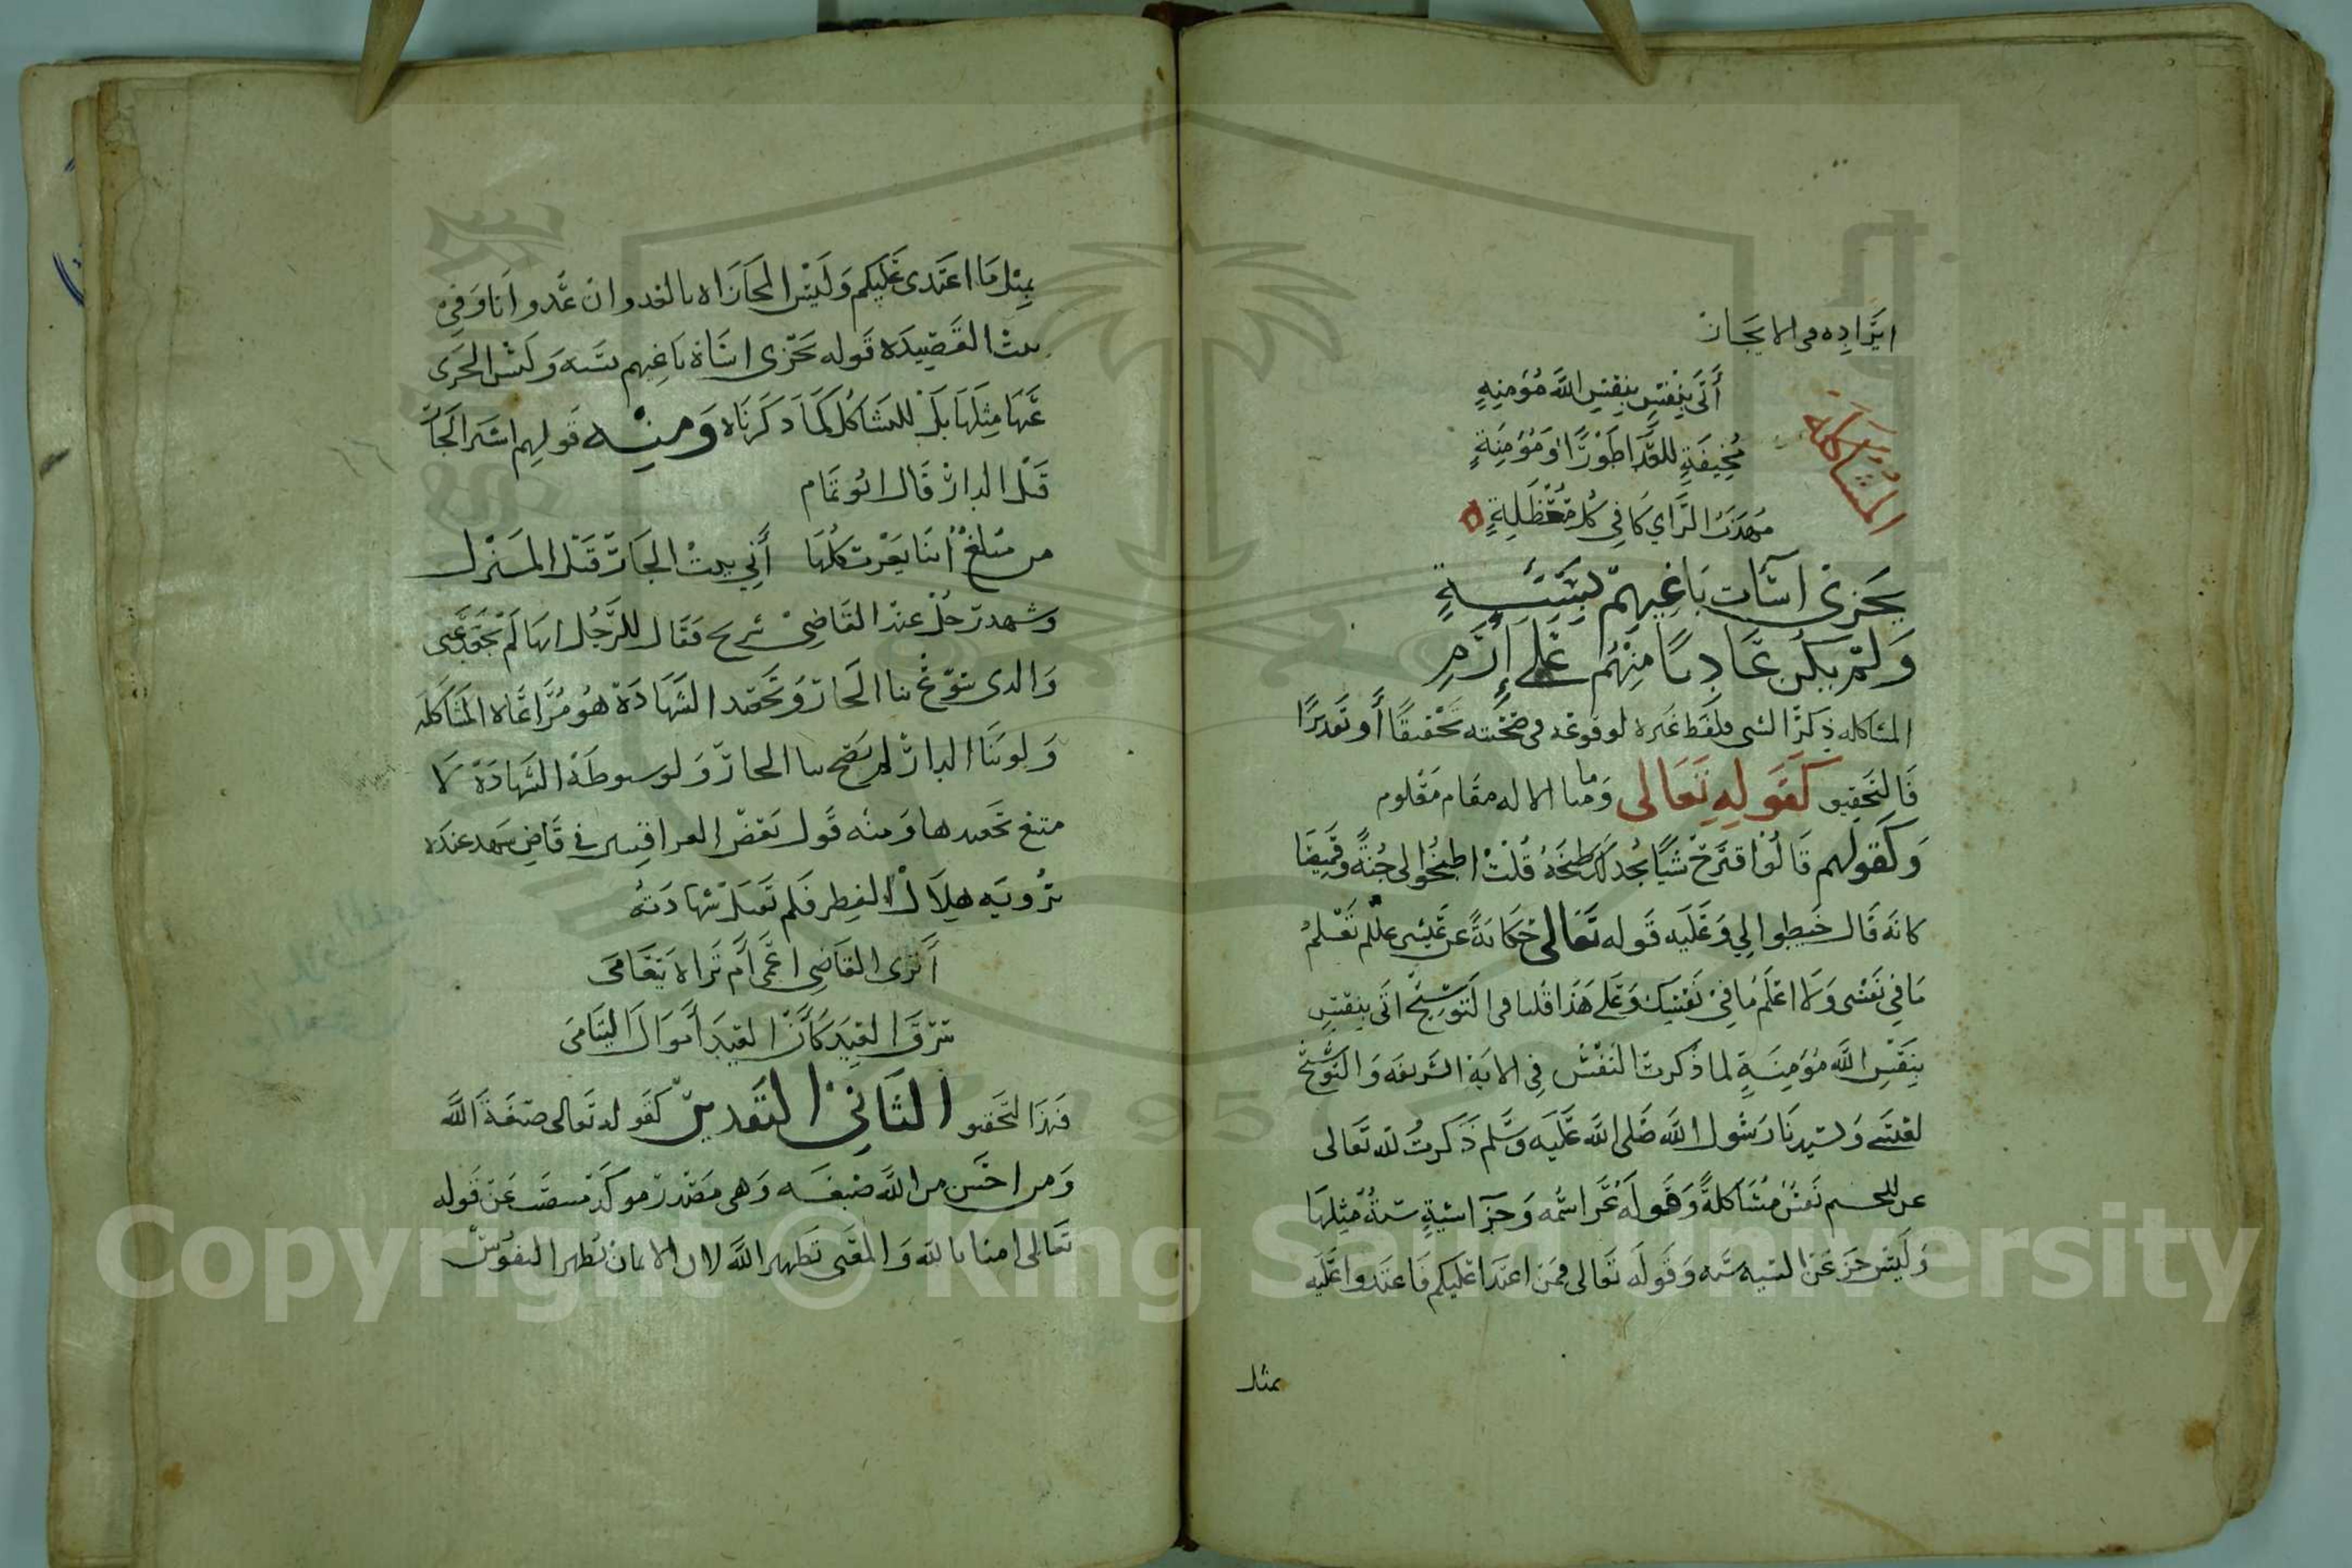 ايراده في الايجاز
أتى بنفس بنفس الله مؤمنه
المشاكلة
مخيفة للعدا طورًا ومؤمنةٍ
مهذب الراي كافي كل معظلةٍ
يجزى اسآت باغيهم بسيئةٍ
ولم يكن عاديًا منهم على إرمِ
المشاكله ذكر الشي بلفظ غيره لوقوعه في صحبته تحقيقًا أو تقديرًا
فالتحقيق كقوله تعالى وما منا الا له مقام معلوم
وكقولهم قالوا اقترح شيًا نجد لك طبخه قلت اطبخوا لي جبةً وقميصًا
كانه قال خيطوا لي وعليه قوله تعالى حكايةً عن عيسى عللم تعلم
ما في نفسي ولا اعلم ما في نفسك وعلى هذا قلنا في التوشيح اتى بنفس
بنفس الله مؤمنةٍ لما ذكرت النفس في الاية الشريفه والتوشيح
لنفسي وسيدنا رسول الله صلى الله عليه وسلم ذكرت لله تعالى
عن نفس مشاكلةً وقوله عز اسمه وجزآ سيئةٍ سيئةٌ مثلها
وليس جزا عن السيه سيه وقوله تعالى فمن اعتدا عليكم فاعتدوا عليه
بمثل
بمثل ما اعتدى عليكم وليس المجازاه بالعدوان عدوانا وفي
بيت القصيده قوله يجزى اساة باغيهم بسيه وليس الجزى
عنها مثلها بل للمشاكل كما ذكرناه ومنه قولهم اشتر الجار
قبل الدار قال ابو تمام
من مبلغ ابنا يعرب كلها أني بنيت الجار قبل المنزل
وشهد رجل عند القاضي شريح فقال للرجل انها لم تجعد عني
والدى سوغ بنا الجار وتجعد الشهادة هو مراعاه المشاكله
ولو بنا الدار لم يصح بنا الجار ولو سبوطة الشهادة لا
متنع تجعيدها ومنه قول بعض العراقيين في قاض شهد عنده
برويه هلال الفطر فلم تقبل شهادته
أترى القاضي اعمى أم تراه يتعامى
سرق العيد كأن العيد أموال اليتامى
فهذا التحقيق الثاني التقدير كقوله تعالى صبغة الله
ومن احسن من الله صبغه وهي مصدر موكد منتصب عن قوله
تعالى امنا بالله والمعنى تطهير الله لان الايمان تطهر النفوس
Copyright © King Saud University
1957